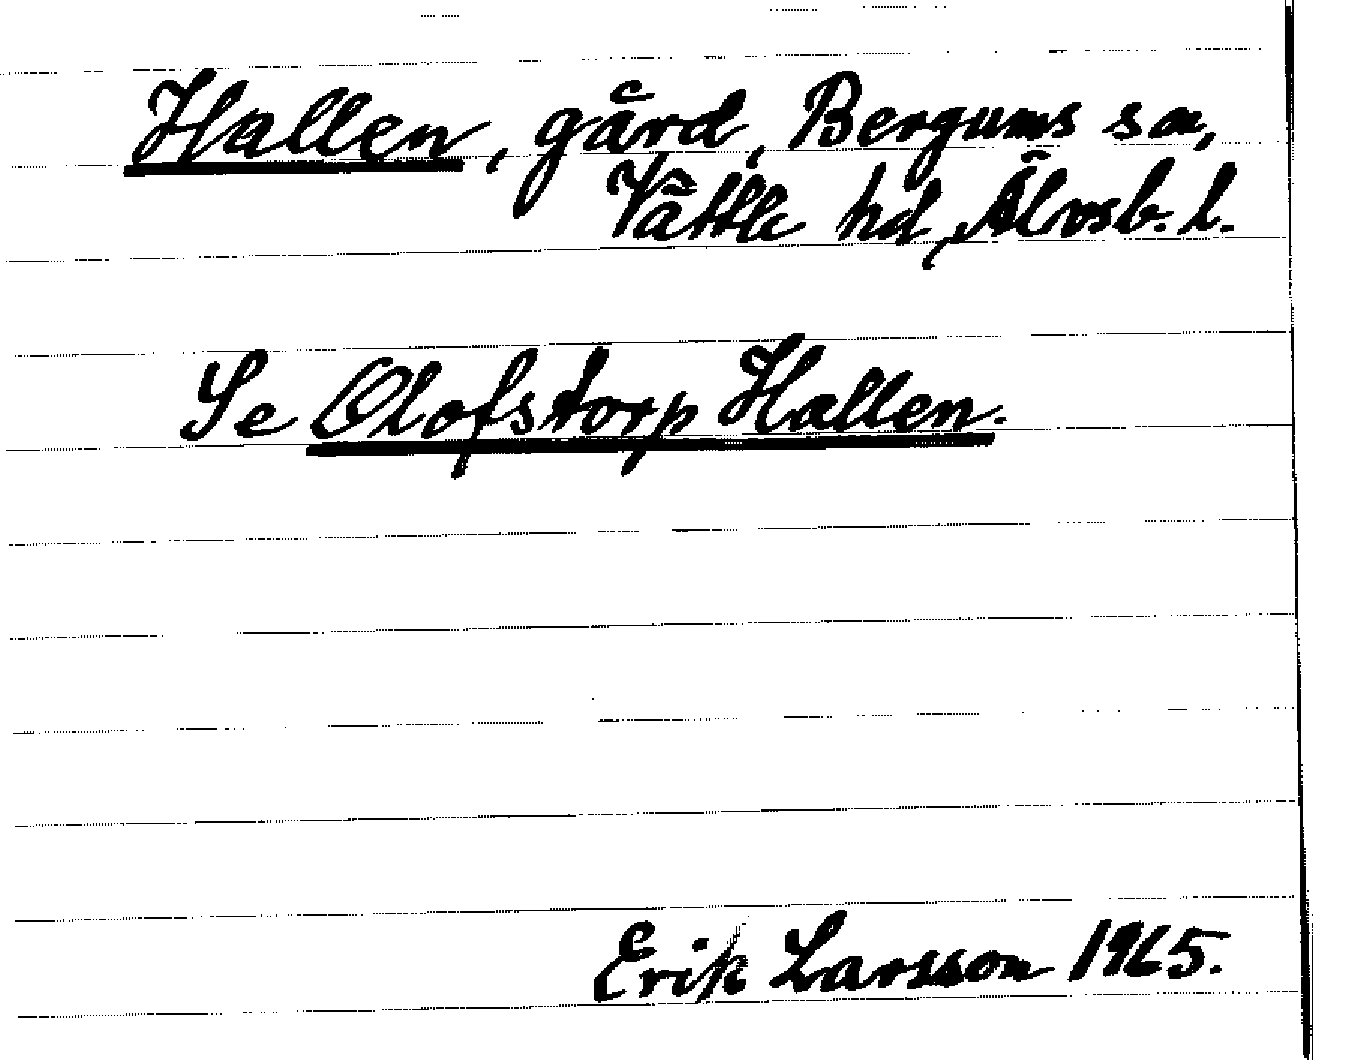 Hallen, gård, Bergums sn,
Vättle hd, Älvsb. l.
Se Olofstorp Hallen.
Erik Larsson 1965.